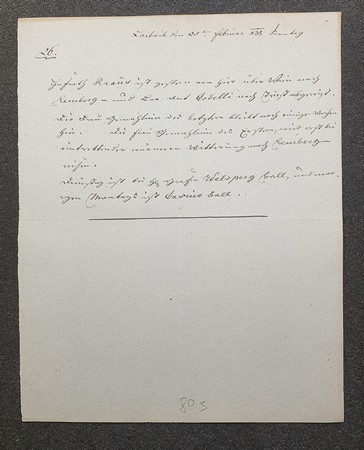 Laibach den 21ten Februar 835 Sonntag
26.
Hofrath Kraus ist gestern von hier über Wien nach
Lemberg – und Codelli nach Triest abgereist.
Die Frau Gemahlin des letztern bleibt noch einige Wochen
hier. Die Frau Gemahlin des Ersten wird erst bei
eintrettender wärmern Witterung nach Lemberg
reisen.
Dienstag ist bei Grafen Welsperg Ball, und
Montags ist Casino Ball.
80